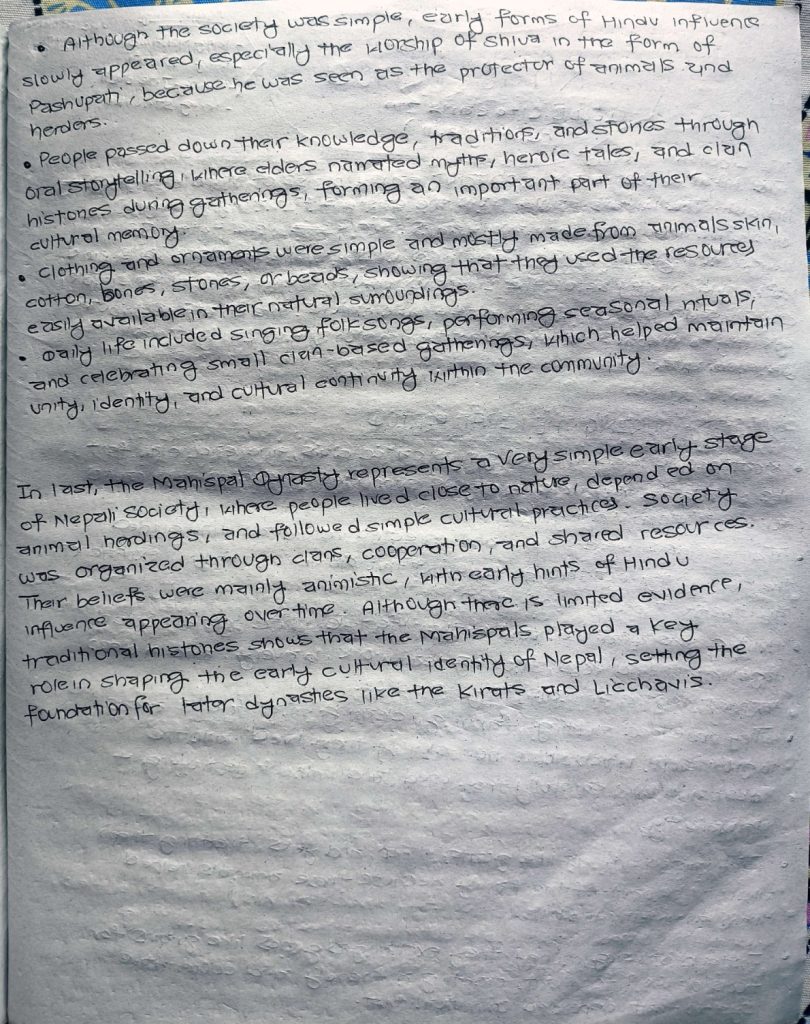 • Although the society was simple, early forms of Hindu influence
slowly appeared, especially the worship of Shiva in the form of
Pashupati, because he was seen as the protector of animals and
herders.
• People passed down their knowledge, traditions, and stories through
oral storytelling, where elders narrated myths, heroic tales, and clan
histories during gatherings, forming an important part of their
cultural memory.
• Clothing and ornaments were simple and mostly made from animals skin,
cotton, bones, stones, or beads, showing that they used the resources
easily available in their natural surroundings.
• Daily life included singing folk songs, performing seasonal rituals,
and celebrating small clan-based gatherings, which helped maintain
unity, identity, and cultural continuity within the community.
In last, the Mahispal Dynasty represents a very simple early stage
of Nepali society, where people lived close to nature, depended on
animal herdings, and followed simple cultural practices. Society
was organized through clans, cooperation, and shared resources.
Their beliefs were mainly animistic, with early hints of Hindu
influence appearing over time. Although there is limited evidence,
traditional histories shows that the Mahispals played a key
role in shaping the early cultural identity of Nepal, setting the
foundation for later dynasties like the Kirats and Licchavis.